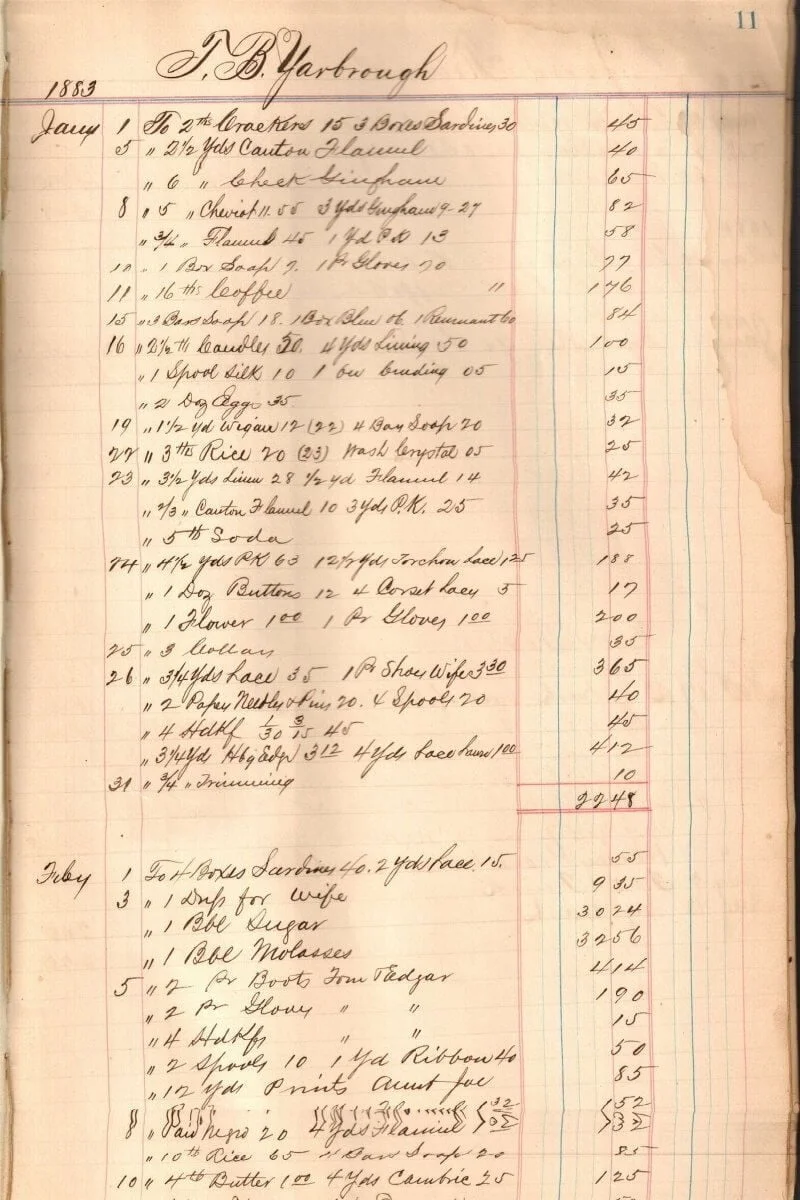 11
T. B. Yarbrough
1883
Jany 1 To 2 lbs Crackers 15 3 Boxes Sardines 30 45
5 " 2 1/2 Yds Canton Flannel 40
" 6 " Check Gingham 65
8 " 5 " Cheviot 11. 55 3 Yds Gingham 9 - 27 82
" 3/4 " Flannel 45 1 Yd P.K 13 58
10 " 1 Box Soap 7. 1 Pr Gloves 70 77
11 " 16 lbs Coffee " 176
15 " 3 Bars Soap 18. 1 Box Blue 06. 1 Remnant 60 84
16 " 2 1/2 lb Candles 50. 4 Yds Lining 50 100
" 1 Spool Silk 10 1 binding 05 15
" 2 Doz Eggs 35 35
19 " 1 1/2 yd Wigan 12 (22) 4 Bar Soap 20 32
22 " 3 lbs Rice 20 (23) Wash Crystal 05 25
23 " 3 1/2 Yds Linen 28 1/2 yd Flannel 14 42
" 2/3 " Canton Flannel 10 3 yds P.K. 25 35
" 5 lb Soda 25
24 " 4 1/2 Yds PK 63 12 1/2 Yds Torchon Lace 125 188
" 1 Doz Buttons 12 4 Corset Laces 5 17
" 1 Flower 1 00 1 Pr Gloves 1 00 200
25 " 3 Collars 35
26 " 3 1/4 Yds Lace 35 1 Pr Shoes Wife 3 30 365
" 2 Papers Needles & Pins 20. 4 Spools 20 40
" 4 Hdkf 1/30 3/15 45 45
" 3 1/4 Yd Hbg Edge 3 12 4 Yds Lace 1 00 412
31 " 3/4 " Trimming 10
22 48
Feby 1 To 4 Boxes Sardines 40. 2 Yds Lace 15. 55
3 " 1 Dress for Wife 9 35
" 1 Bbl Sugar 30 24
" 1 Bbl Molasses 32 56
5 " 2 Pr Boots Tom & Edgar 414
" 2 Pr Gloves " " 190
" 4 Hdkfs " " 15
" 2 Spools 10 1 Yd Ribbon 40 50
" 12 yds Prints Aunt Joe 85
32 52
8 " Paid Negro 20 4 Yds Flannel 32 32
" 10 lb Rice 65 Bars Soap 20 85
10 " 4 lb Butter 1 00 4 Yds Cambric 25 125